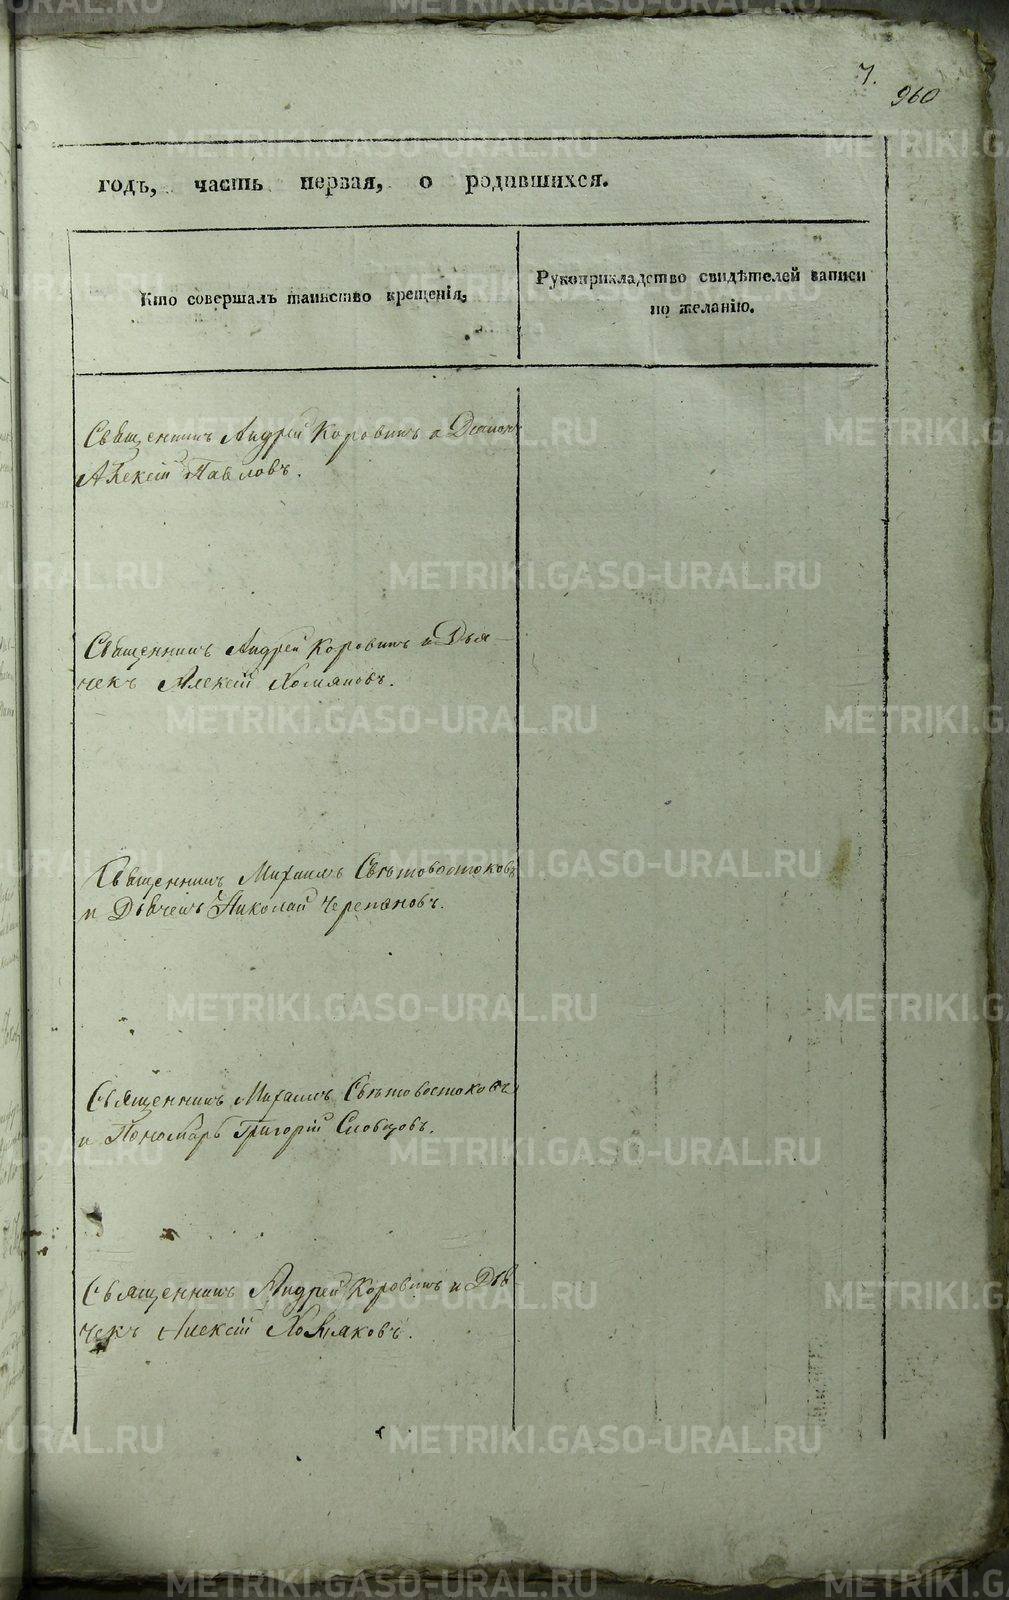 7.
960
годъ, часть первая, о родившихся.
Кто совершалъ таинство крещенія,
Рукоприкладство свидѣтелей записи
по желанію.
Священникъ Андрей Коровинъ и Діаконъ
Алексій Павловъ.
Священникъ Андрей Коровинъ и Дья-
чекъ Алексій Хомяковъ.
Священникъ Михаилъ Свѣтовостоковъ
и Дьячекъ Николай Черепановъ.
Священникъ Михаилъ Свѣтовостоковъ
и Пономарь Григорій Словцовъ.
Священникъ Андрей Коровинъ и Дья-
чекъ Алексій Хомяковъ.
METRIKI.GASO-URAL.RU